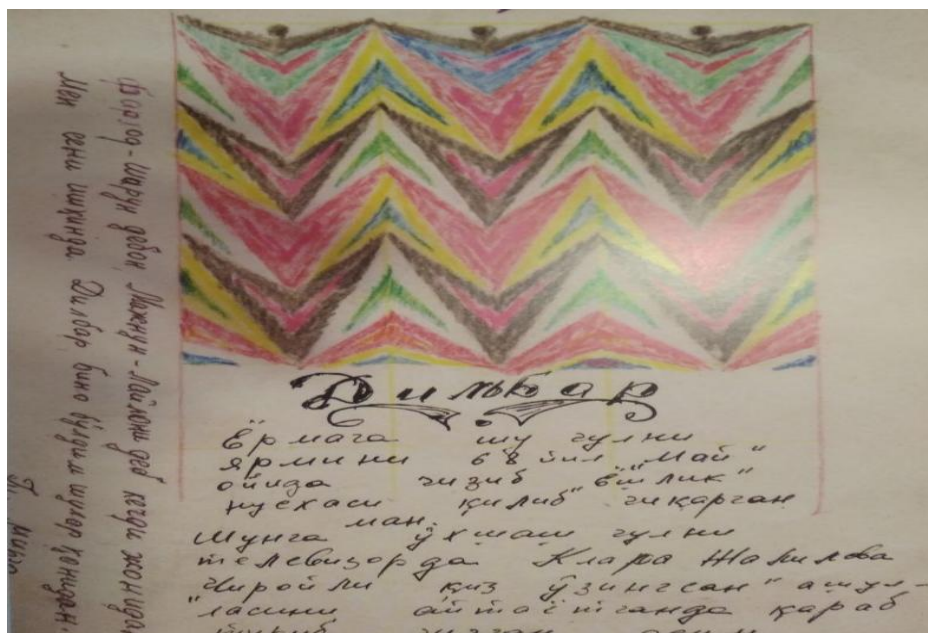 Дильбар
"Ёрмага шу гулни
ярмини 68 йил "Май"
ойида чизиб "ёшлик"
нусхаси қилиб чиқарган
ман.
Шунга ўхшаш гулни
телевизорда Клара Жалилова
Чиройли қиз ўзингсан" ашул-
"ласини айтаётганда қараб
Фарҳод-Ширин дебон Мажнун-Лайлони деб кечди жонидан
Мен сени ишқингда Дилбар бино бўлдим